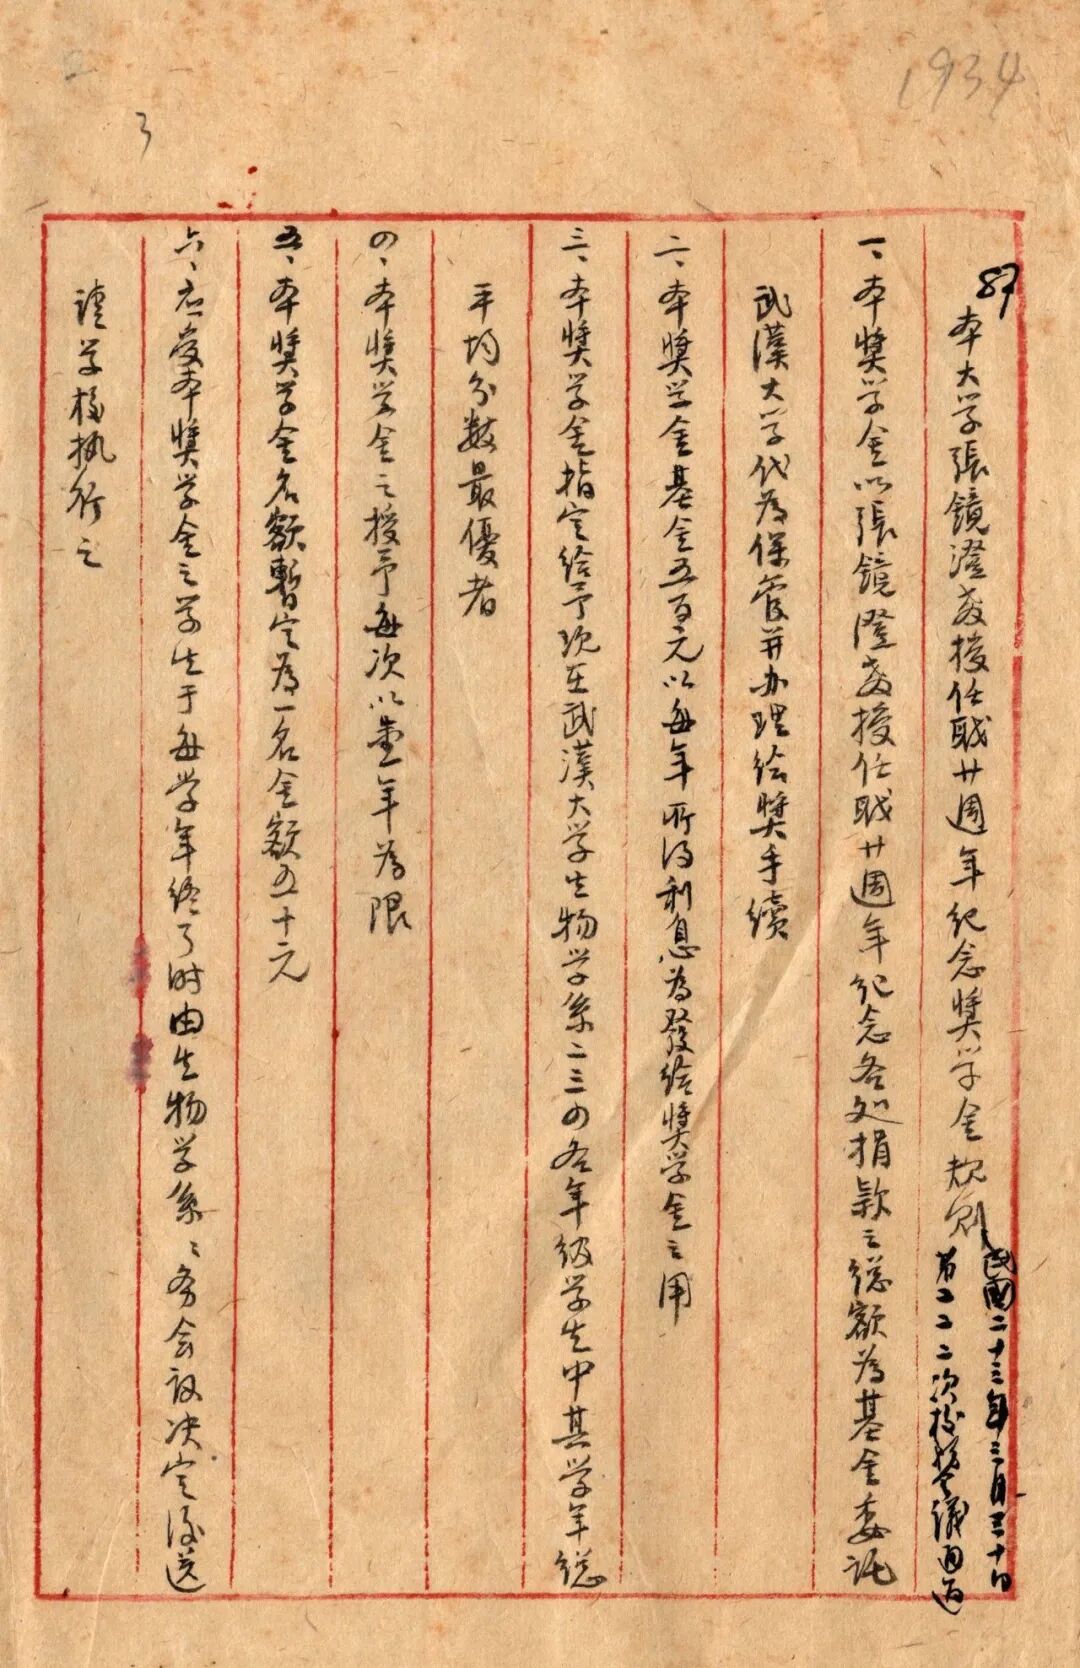 1934
3
89
本大学張镜澄教授任职廿週年纪念奬学金规则
民國二十三年三月三十日
第二二二次校務会議通过
一、本奬学金以張镜澄教授任职廿週年纪念各处捐款之總額为基金委託
武漢大学代为保管并办理给奬手續
二、本奬学金基金五百元以每年所得利息为發给奬学金之用
三、本奬学金指定给予现在武漢大学生物学系二三四各年级学生中其学年總
平均分数最優者
四、本奬学金之授予每次以壹年为限
五、本奬学金名额暫定为一名金额五十元
六、应受本奬学金之学生于每学年终了时由生物学系系务会议决定後送
请学校执行之